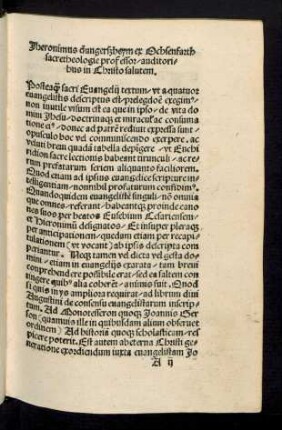 Jheronimus dũngerszheym ex Ochsenfarth
sacre theologie professor/auditori-
bus in Christo salutem.
Postq̃ sacri Euangelij textum/ vt a quatuor
euangelistis descriptus est/
non inutile visum est ea que in ipso/ de vita do
mini Jhesu/doctrina et miraculis ac consuma
tione eius/donec ad patrẽ rediit expressa sunt/
opusculo hoc vel comminiscendo exerpere. ac
veluti breui quadã tabella depigere/ vt Enchi
ridion sacre lectionis habeant tirunculi/ sacre
rum prefatarum seriem aliquanto faciliorem.
Quod etiam ad ipsius euangelice scripture in-
telligentiam/nonnihil profaturum confidimꝰ.
Quandoquidem euangelistę singuli/nõ omnia
que omnes/referant/habeantqz proinde cano
nes suos per beatos Eusebium Cesariensem
et Hieronimũ designatos/Et insuper pleraqz
per anticipationem/quedam etiam per recapi
tulationem (vt vocant) ab ipsis descripta com
periantur. Neqz tamen vel dicta vel gesta do-
mini/ etiam in euangelijs exarata/ tam breui
comprehendere possibile erat/ sed ea saltem con
tingere quibꝰ/alia coherẽt/animus fuit. Quod
si quis in ys ampliora requirat/ad librum diui
Augustini de consensu euangelistarum inscrip
tum. Ad Monotesseron quoqz Joannis Ger
son (quamuis ille in quibusdam alium obseruet
ordinem) Ad historiã quoqz scholasticam/re
spicere poterit. Est autem ab eterna Christi ge
neratione exordiendum iuxta euangelistam Jo
A ij